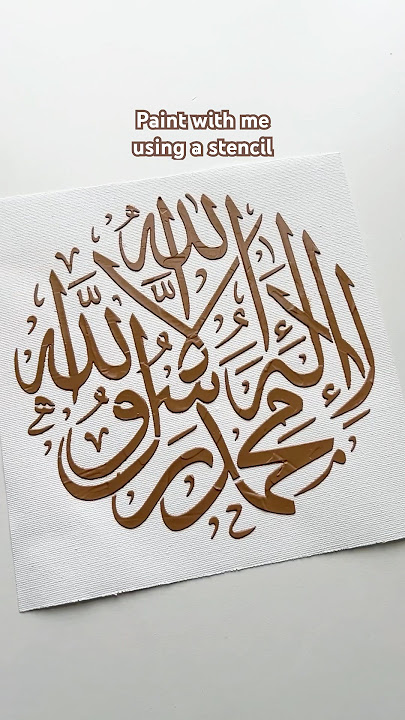 Paint with me
using a stencil
لا إله إلا الله محمد رسول الله